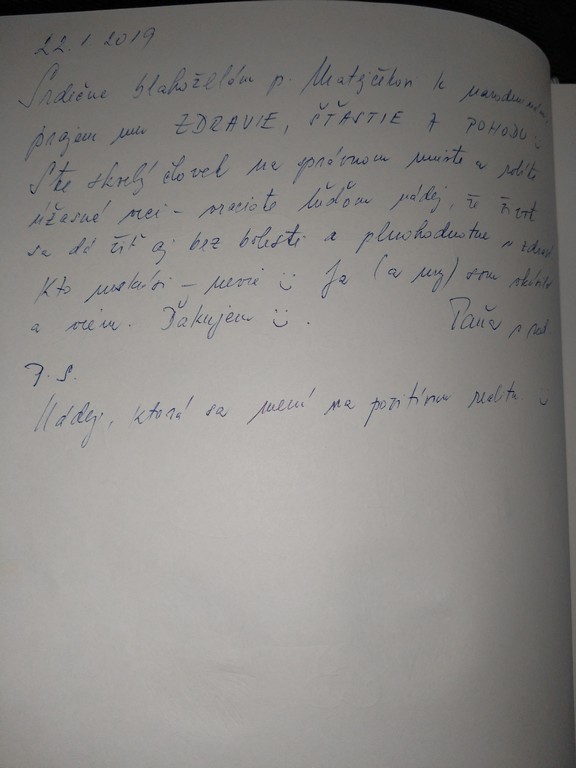 22.1 2019
Srdečne blahoželám p. Matejčekovi k narodeninám
prajem mu ZDRAVIE, ŠŤASTIE A POHODU :)
Ste skvelý človek na správnom mieste a robíte
úžasné veci - vraciate ľuďom nádej, že život
sa dá žiť aj bez bolesti a plnohodnotne v zdraví
Kto neskúsi - nevie :) Ja (a my) som skúsila
a viem. Ďakujem :). Táňa s rod.
P.S.
Nádej, ktorá sa mení na pozitívnu realitu. :)